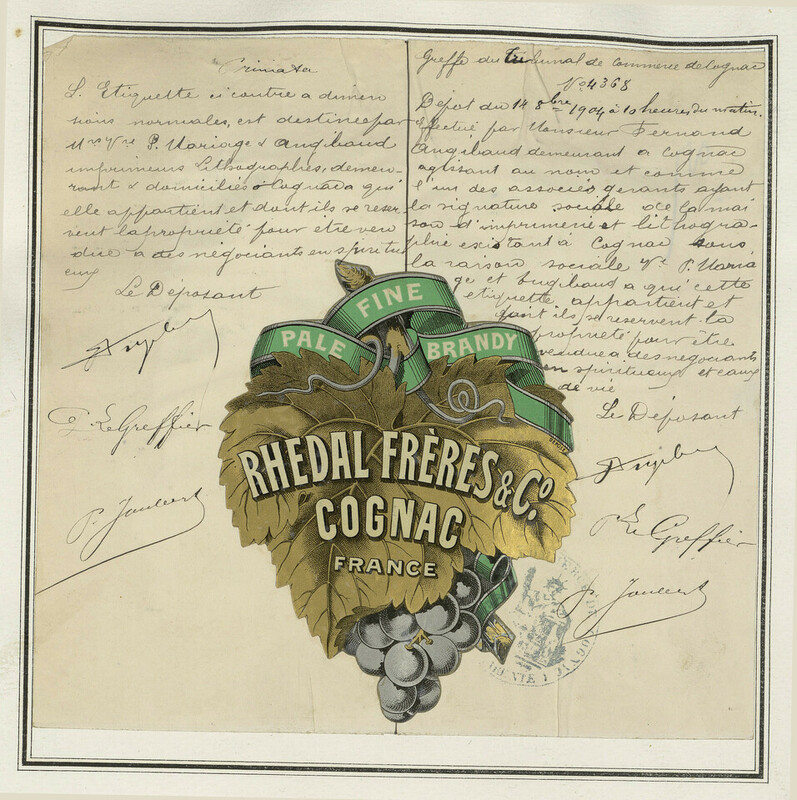 Primata
L'Etiquette ci contre a dimen
sions normales, est destinée par
Mrs Vve P. Mariage & Angibaud
imprimeurs Lithographes, demeu-
rant & domiciliés à Cognac a qui
elle appartient et dont ils se reser
vent la propriété pour être ven
due a des négociants en spiritu
eux
Le Déposant
P. Le Greffier
P. Joubert
Greffe du Tribunal de Commerce de Cognac
No 4368
Dépot du 14 8bre 1904 à 10 heures du matin.
Effectué par Monsieur Fernand
Angibaud demeurant a Cognac
agissant au nom et comme
l'un des associés gérants ayant
la signature sociale de la mai
son d'imprimerie et lithogra-
phie existant à Cognac sous
la raison sociale Ve P. Maria
ge et Angibaud a qui cette
etiquette appartient et
dont ils se reservent la
propriété pour être
vendue a des négociants
en spiritueux et eaux
de vie
Le Déposant
P. Le Greffier
P. Joubert
FINE
PALE BRANDY
RHEDAL FRÈRES & Co.
COGNAC
FRANCE